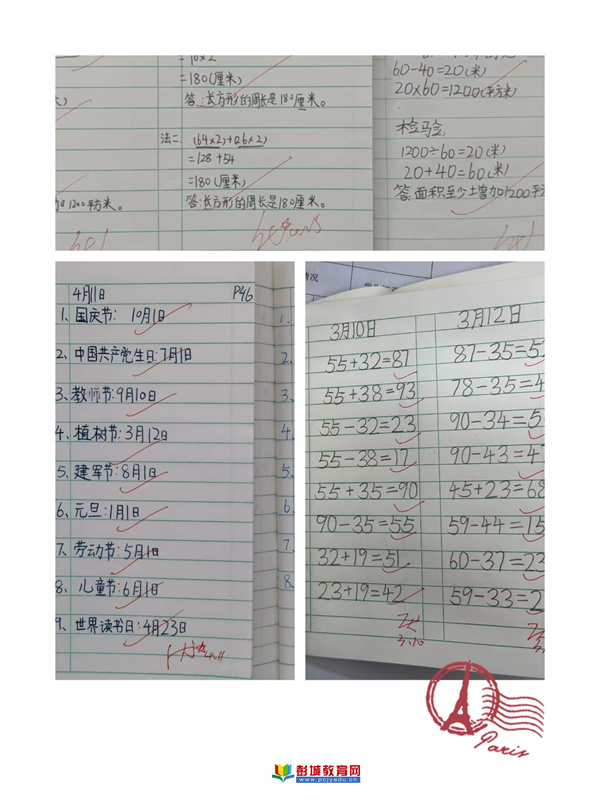 =180(厘米)
答:长方形的周长是180厘米。
法二:(64×2)+(26×2)
=128+54
=180(厘米)
答:长方形的周长是180厘米。
1200平方米。
60-40=20(米)
20×60=1200(平方米)
检验:
1200÷60=20(米)
20+40=60(米)
答:面积至少增加1200平
4月11日 P46
1、国庆节: 10月1日
2、中国共产党生日:7月1日
3、教师节:9月10日
4、植树节:3月12日
5、建军节:8月1日
6、元旦:1月1日
7、劳动节:5月1日
8、儿童节:6月1日
9、世界读书日:4月23日
1、
2、
3、
4、
5、
6、
7、
8、
情况
3月10日
55+32=87
55+38=93
55-32=23
55-38=17
55+35=90
90-35=55
32+19=51
23+19=42
3.10
3月12日
87-35=5
78-35=4
90-34=5
90-43=4
45+23=68
59-44=15
60-37=23
59-33=2
Paris
彭城教育网
www.pcjyedu.cn